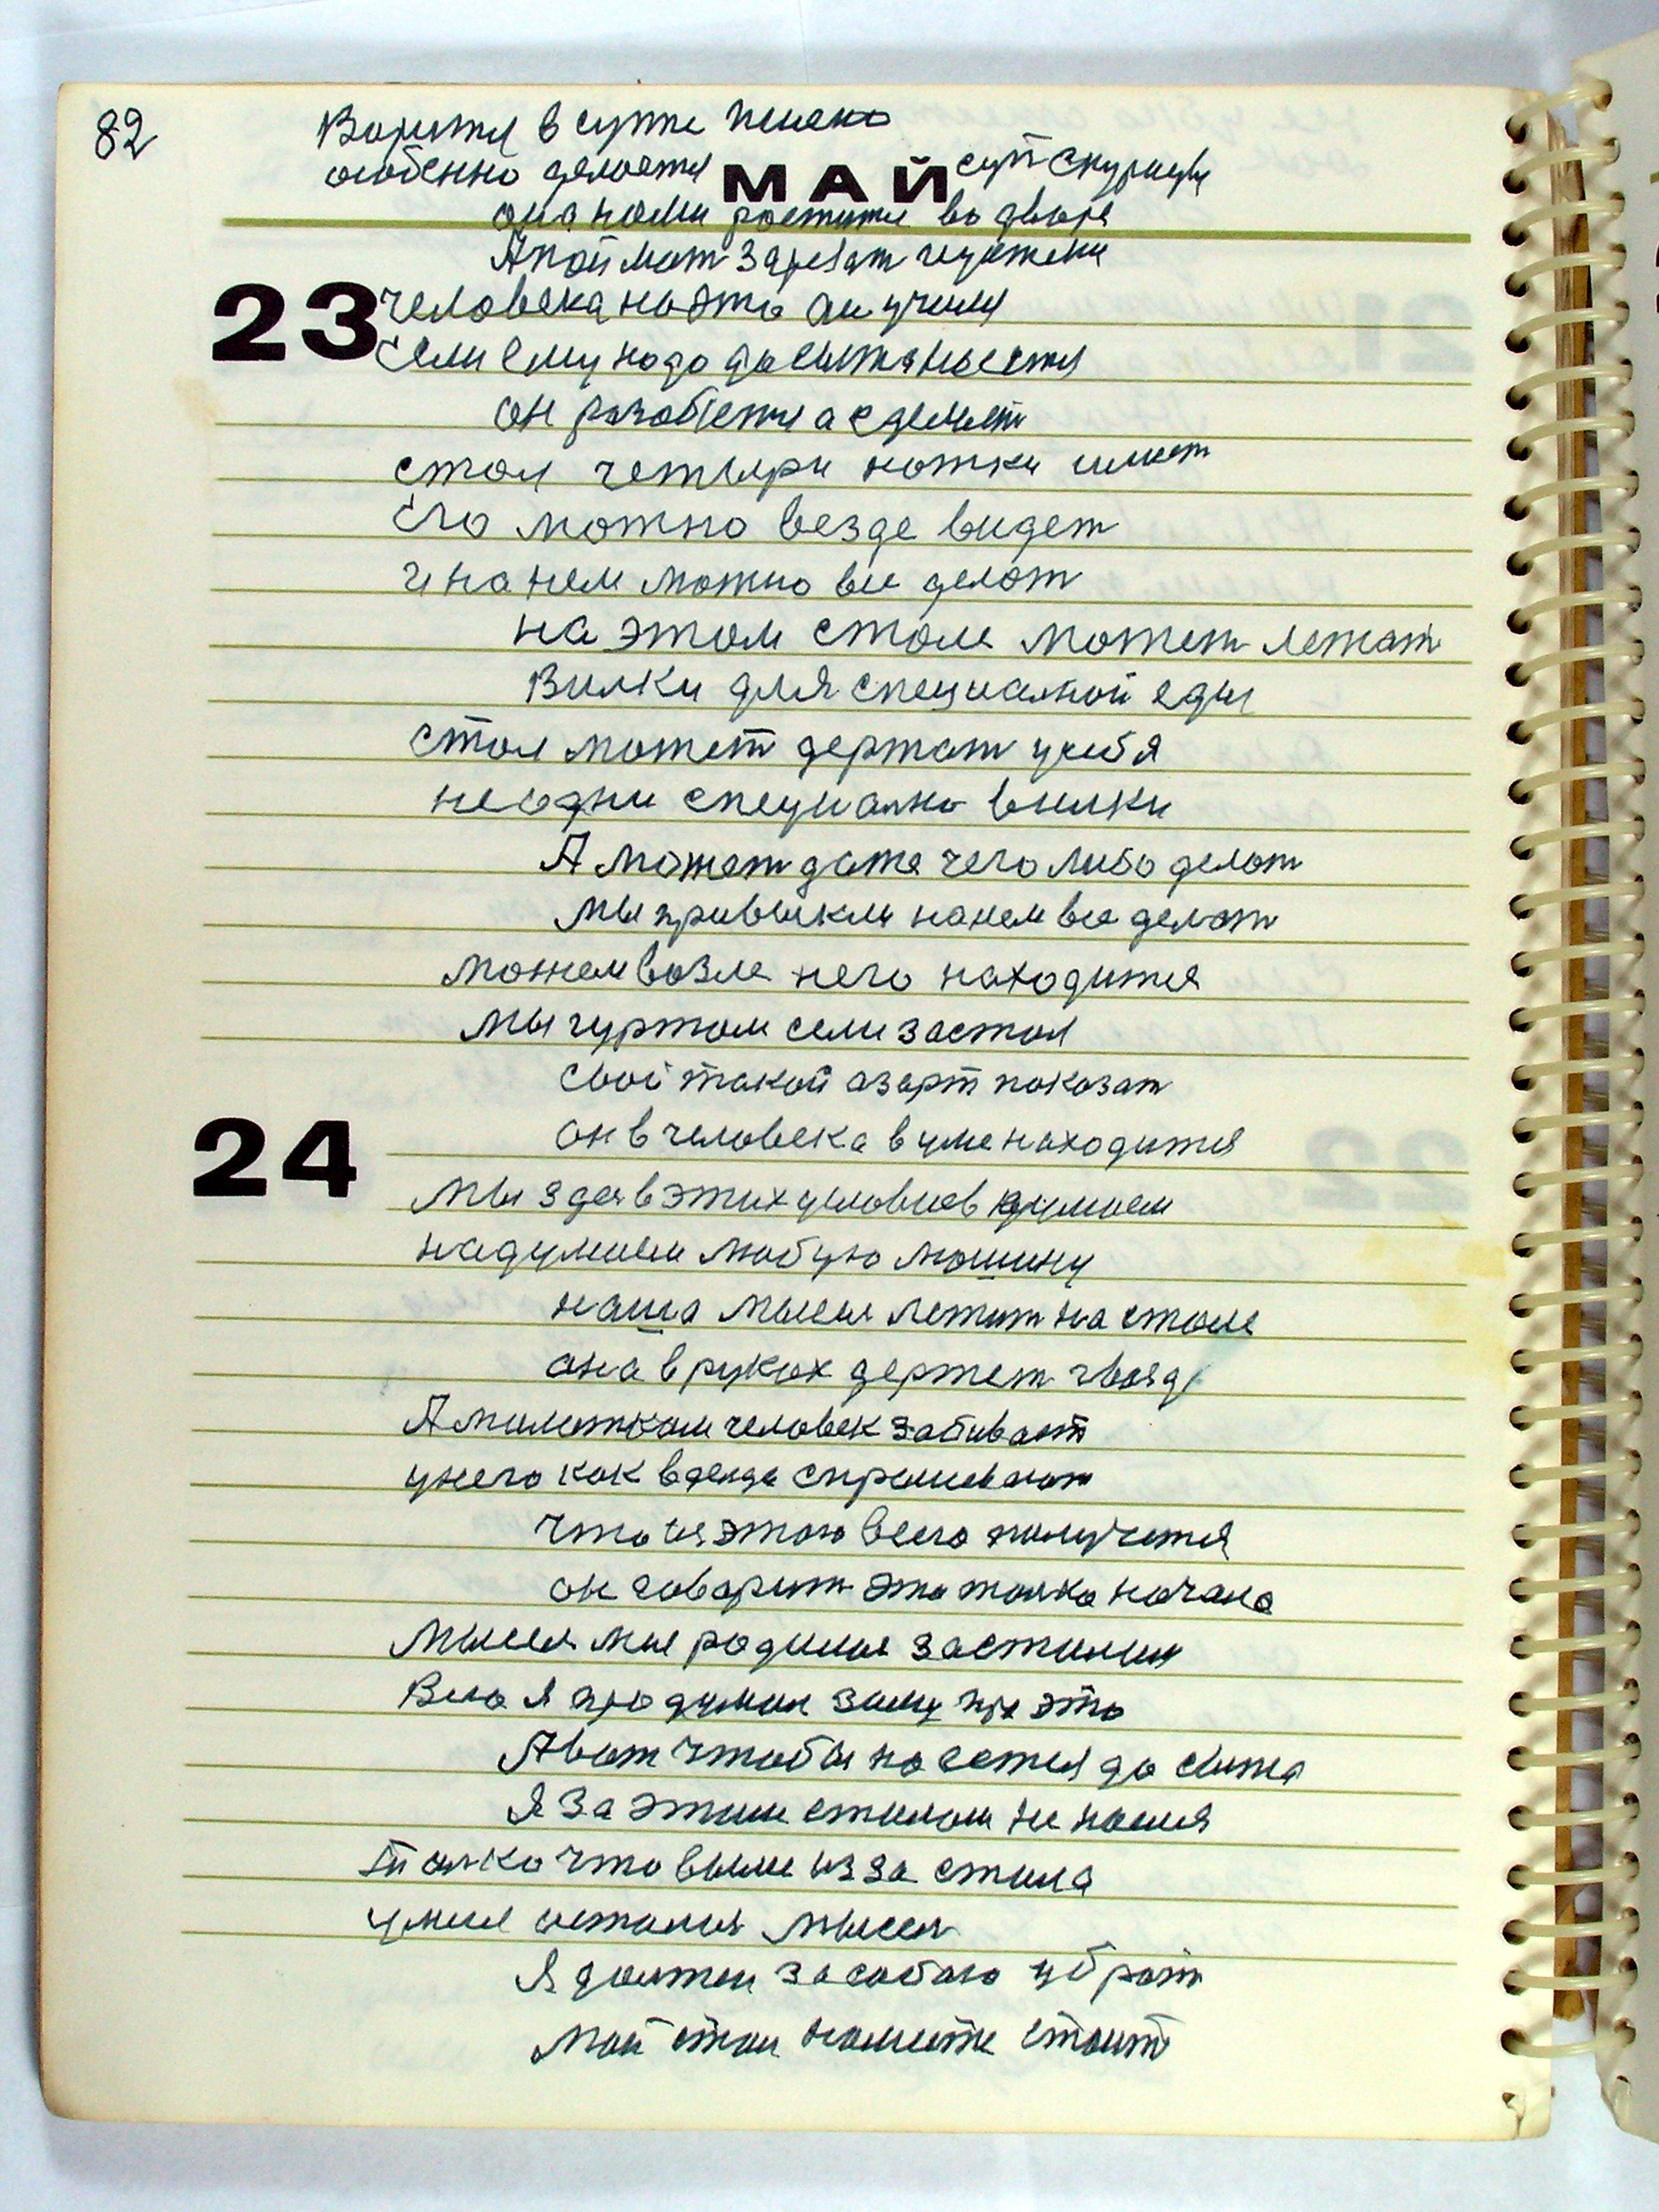 82
Варится в супе пшено
особенно делается суп с курицы
МАЙ
она нами ростится во дворе
А поймат зарезат
23
человека на это он учился
Если ему надо до сыта наестся
он разобется а сделает
стол четыри ножки имеет
Его можно везде видет
и на нем можно все делат
на этом столе может лежат
Вилки для специалной еды
стол может держат у себя
не одни специално вилки
А может даже чего либо делат
мы привыкли на нем все делат
можем возле него находится
мы гуртом сели за стол
свой такой азарт показат
он в человека в уме находится
24
мы здес в этих условиев думаем
надумаем любую машину
наша мысля лежит на столе
она в руках держет гвозд
А молотком человек забивает
у него как всегда спрашивают
что с этого всего получится
он говорит это толко начало
мысля мне родилась за столом
Всю я продумал зиму про это
А вот чтобы наестся до сыта
Я за этим столом не наелся
Толко что вылез из за стола
у меня осталась мысля
Я должен за собою убрат
мой стол на месте стоит